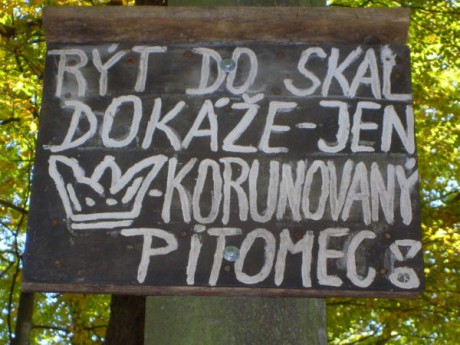 RÝT DO SKAL
DOKÁŽE-JEN
-KORUNOVANÝ
PITOMEC!